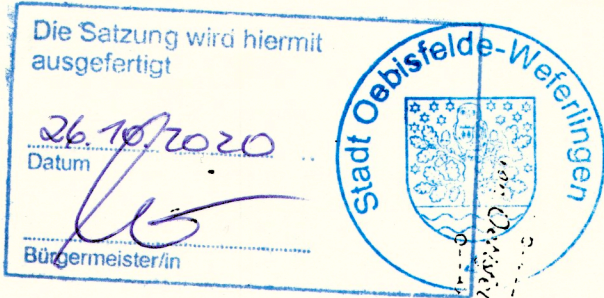 Die Satzung wird hiermit
ausgefertigt
26.10.2020
Datum
Bürgermeister/in
Stadt Oebisfelde-Weferlingen